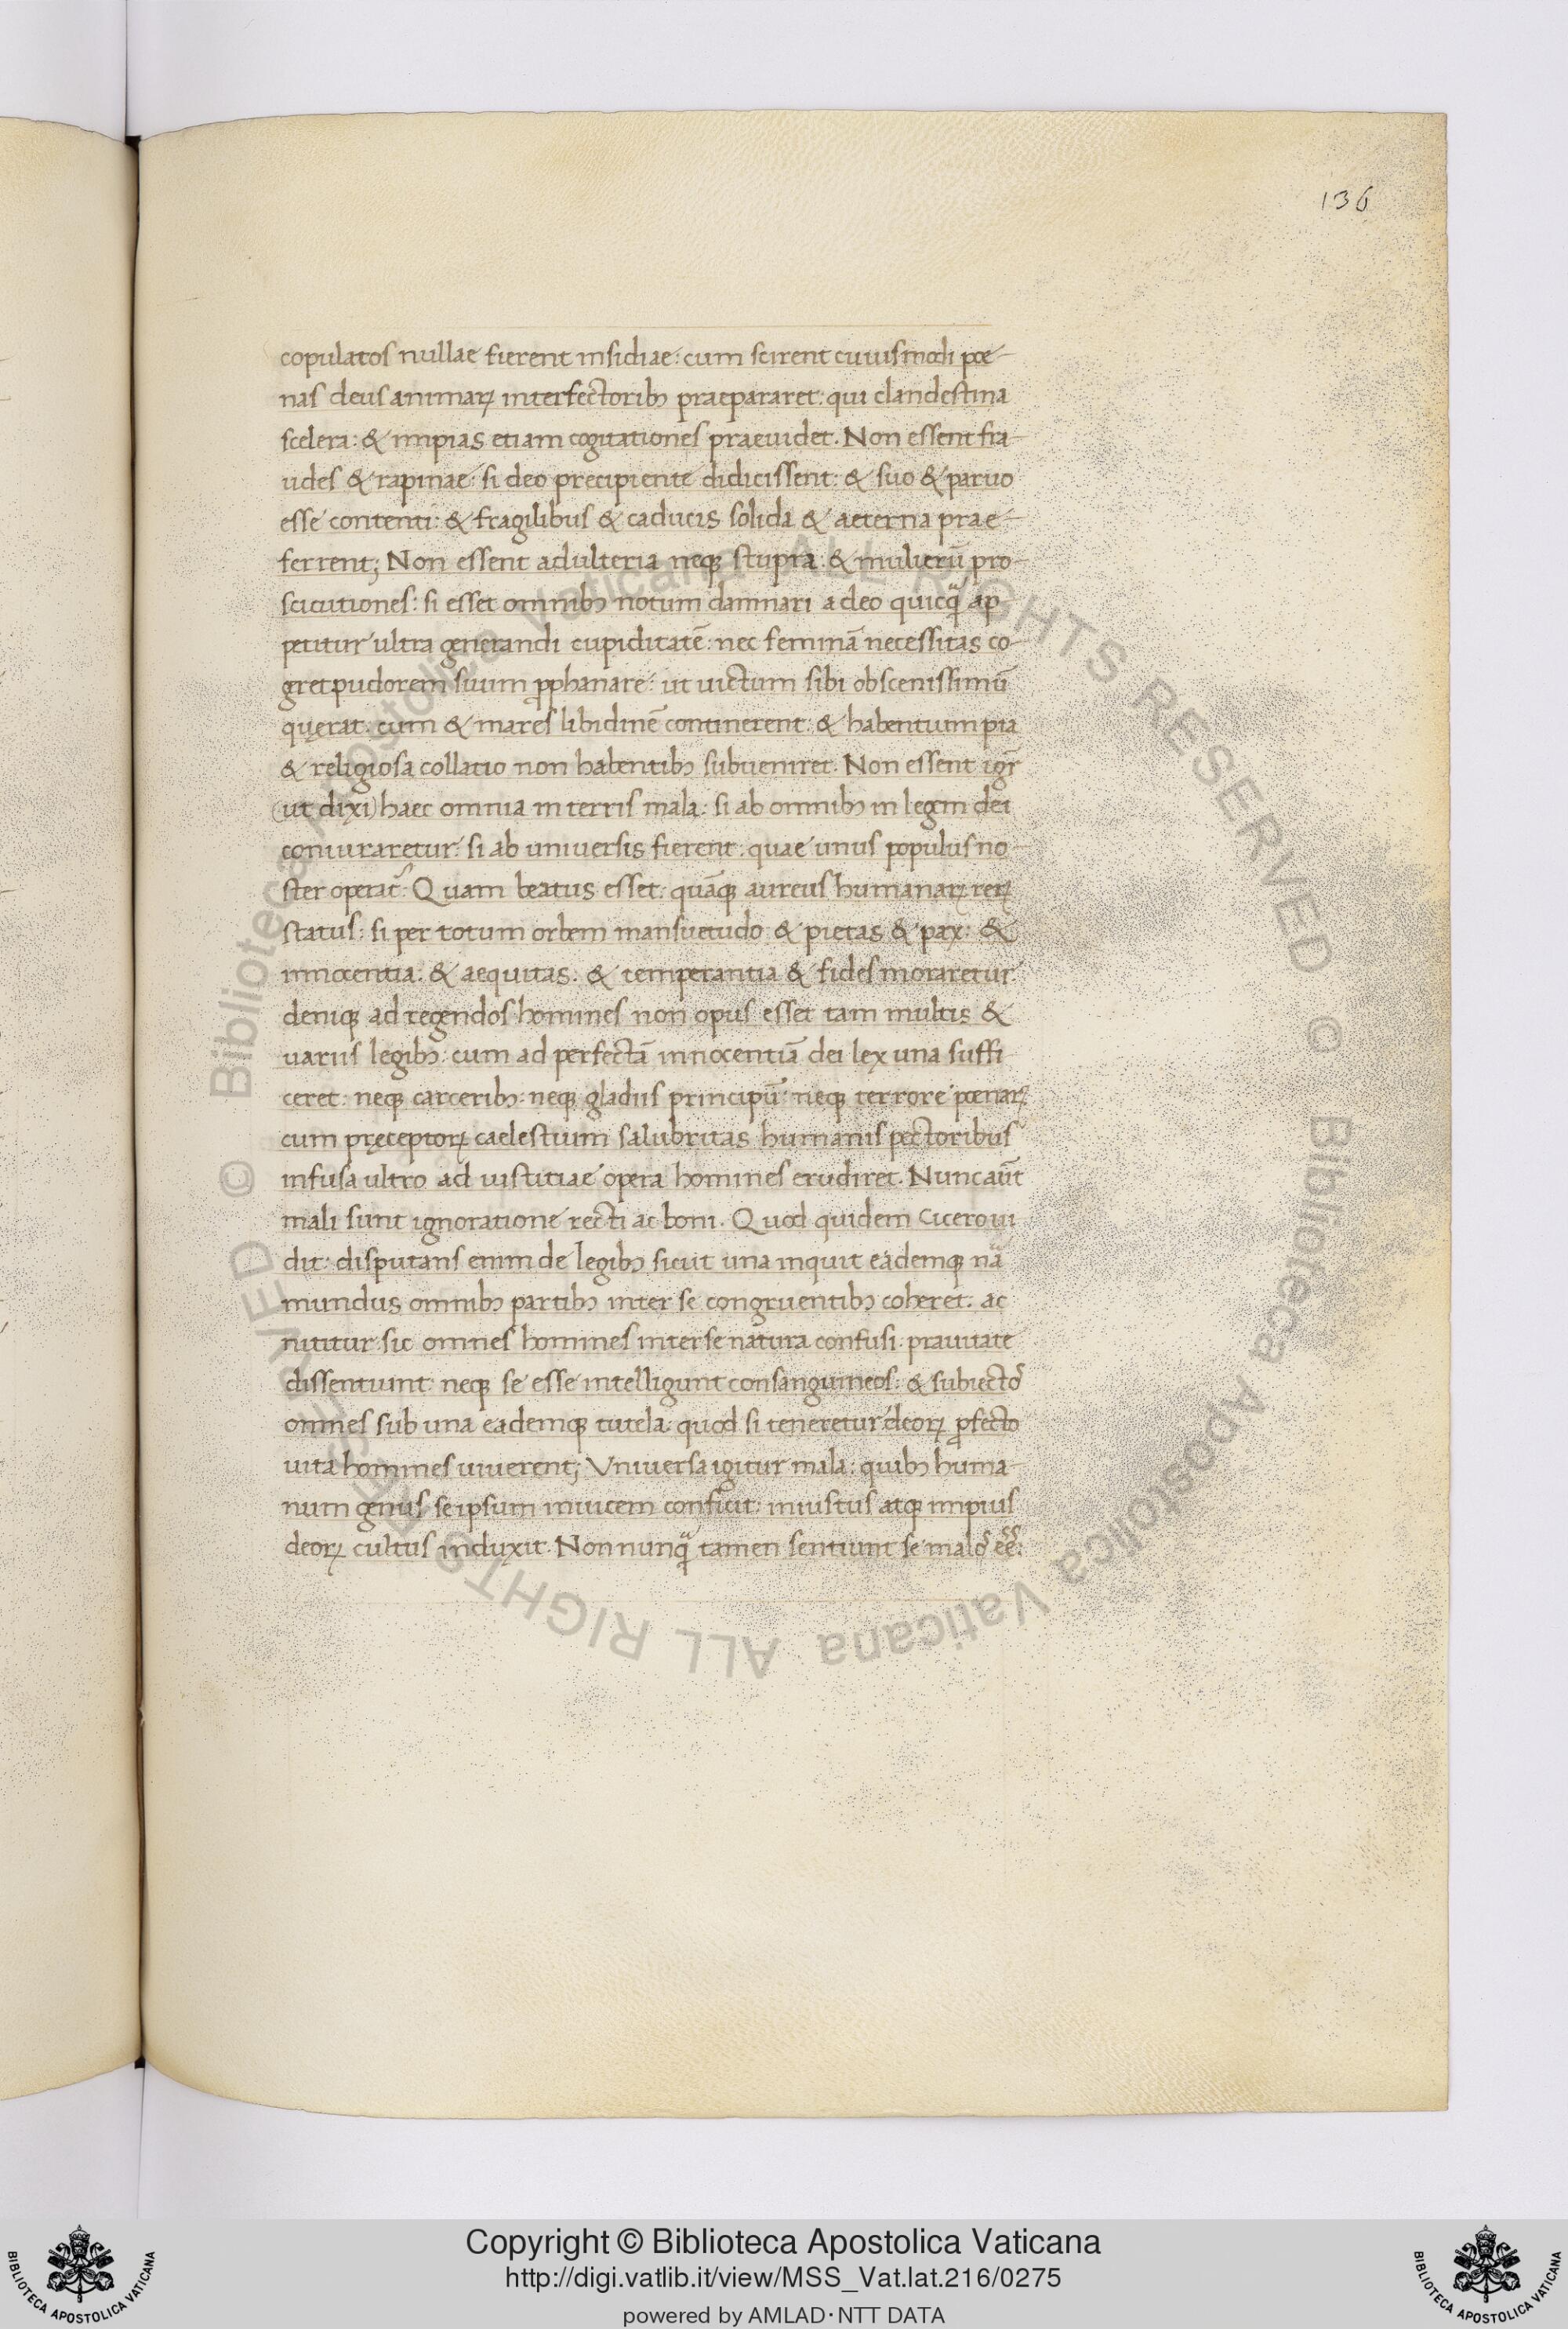 136
copulatos nullae fierent insidiae: cum scirent cuiusmodi poe-
nas deus animaꝝ interfectoribꝫ praepararet: qui clandestina
scelera: & impias etiam cogitationes praeuidet. Non essent fra-
udes & rapinae: si deo precipiente didicissent: & suo & paruo
esse contenti: & fragilibus & caducis solida & aeterna prae-
ferrent; Non essent adulteria neqꝫ stupra. & mulierū pro-
scitutiones: si esset omnibꝫ notum damnari a deo quicq̈ ap
petitur ultra generandi cupiditatē: nec feminā necessitas co-
gret pudorem suum ꝓphanare: ut uictum sibi obscenissimū
quęrat: cum & mares libidinē continerent: & habentium pia
& religiosa collatio non habentibꝫ subueniret. Non essent igr̄
(ut dixi) haec omnia in terris mala: si ab omnibꝫ in legem dei
coniuraretur: si ab uniuersis fierent: quae unus populus no-
ster operat᷒: Quam beatus esset: quāqꝫ aureus humanaꝝ reꝝ
status: si per totum orbem mansuetudo & pietas & pax: &
innocentia. & aequitas. & temperantia & fides moraretur.
deniqꝫ ad regendos homines non opus esset tam multis &
uariis legibꝫ: cum ad perfectā innocentiā dei lex una suffi-
ceret: neqꝫ carceribꝫ: neqꝫ gladiis principū: neqꝫ terrore poenaꝝ
cum pręceptoꝝ caelestium salubritas humanis pectoribus
infusa ultro ad iustitiae opera homines erudiret. Nunc aūt
mali sunt ignoratione recti ac boni. Quod quidem Cicero ui
dit: disputans enim de legibꝫ sicut una inquit eademqꝫ nā
mundus omnibꝫ partibꝫ inter se congruentibꝫ coheret. ac
nititur: sic omnes homines inter se natura confusi. prauitate
dissentiunt: neqꝫ se esse intelligunt consanguineos: & subiectoˢ
omnes sub una eademqꝫ tutela: quod si teneretur deoꝝ ꝓfecto
uita homines uiuerent; Vniuersa igitur mala: quibꝫ huma-
num genus se ipsum inuicem conficit: iniustus atqꝫ impius
deoꝝ cultus induxit. Non nunq̈ tamen sentiunt se maloˢ eēˢ:
© Biblioteca Apostolica Vaticana ALL RIGHTS RESERVED © Biblioteca Apostolica Vaticana ALL RIGHTS RESERVED
BIBLIOTECA APOSTOLICA VATICANA
Copyright © Biblioteca Apostolica Vaticana
http://digi.vatlib.it/view/MSS_Vat.lat.216/0275
powered by AMLAD·NTT DATA
BIBLIOTECA APOSTOLICA VATICANA